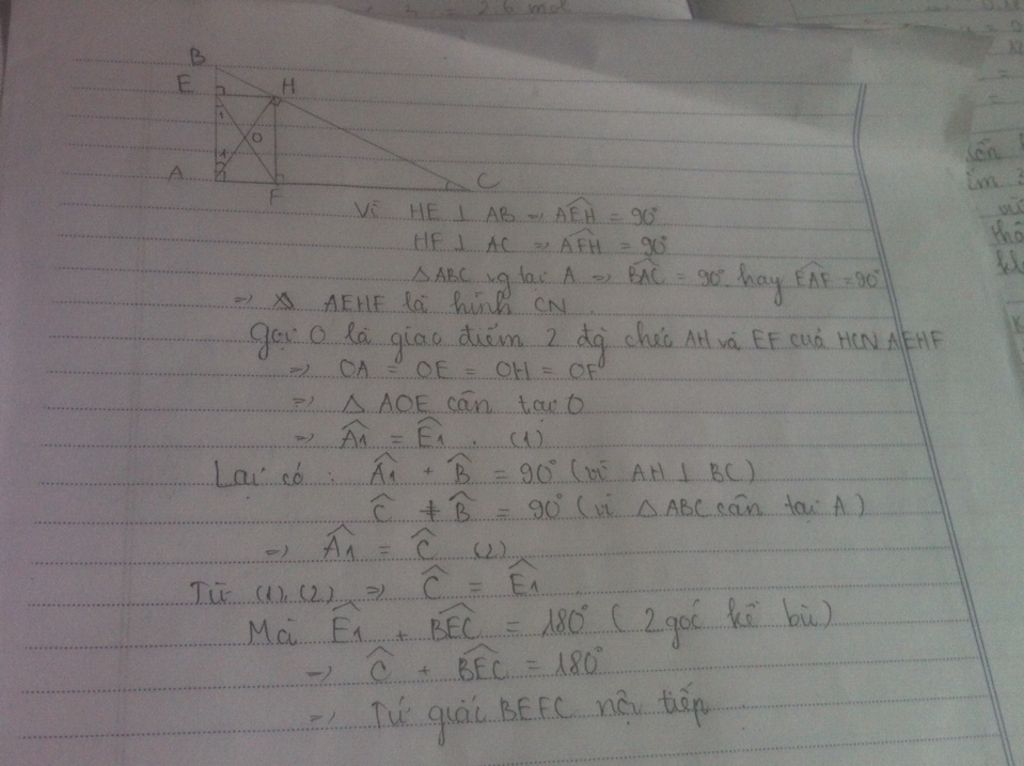 B
E H
1
O
1
A
F
C
Vì HE ⊥ AB ⇒ AÊH = 90°
HF ⊥ AC ⇒ AF̂H = 90°
△ABC vg tại A ⇒ BÂC = 90° hay EÂF = 90°
⇒ AEHF là hình CN.
Gọi O là giao điểm 2 đg chéo AH và EF của HCN AEHF
⇒ OA = OE = OH = OF
⇒ △ AOE cân tại O
⇒ Â1 = Ê1. (1)
Lại có: Â1 + B̂ = 90° (vì AH ⊥ BC)
Ĉ + B̂ = 90° (vì △ ABC cân tại A)
⇒ Â1 = Ĉ (2)
Từ (1), (2) ⇒ Ĉ = Ê1.
Mà Ê1 + BÊC = 180° (2 góc kề bù)
⇒ Ĉ + BÊC = 180°
⇒ Tứ giác BEFC nội tiếp.